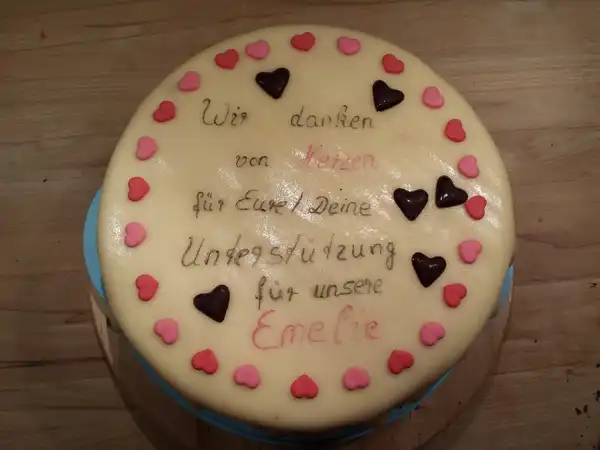 Wir danken
von Herzen
für Eure/Deine
Unterstützung
für unsere
Emelie